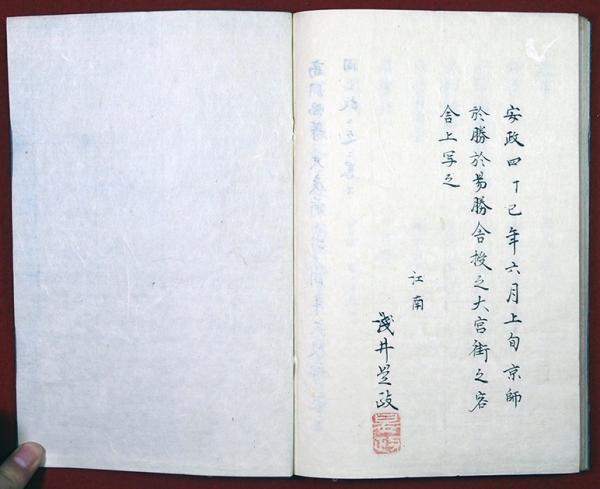 安政四丁巳年六月上旬京師
於勝於易勝舎授之大宮街之客
舎上写之
江南
浅井是政